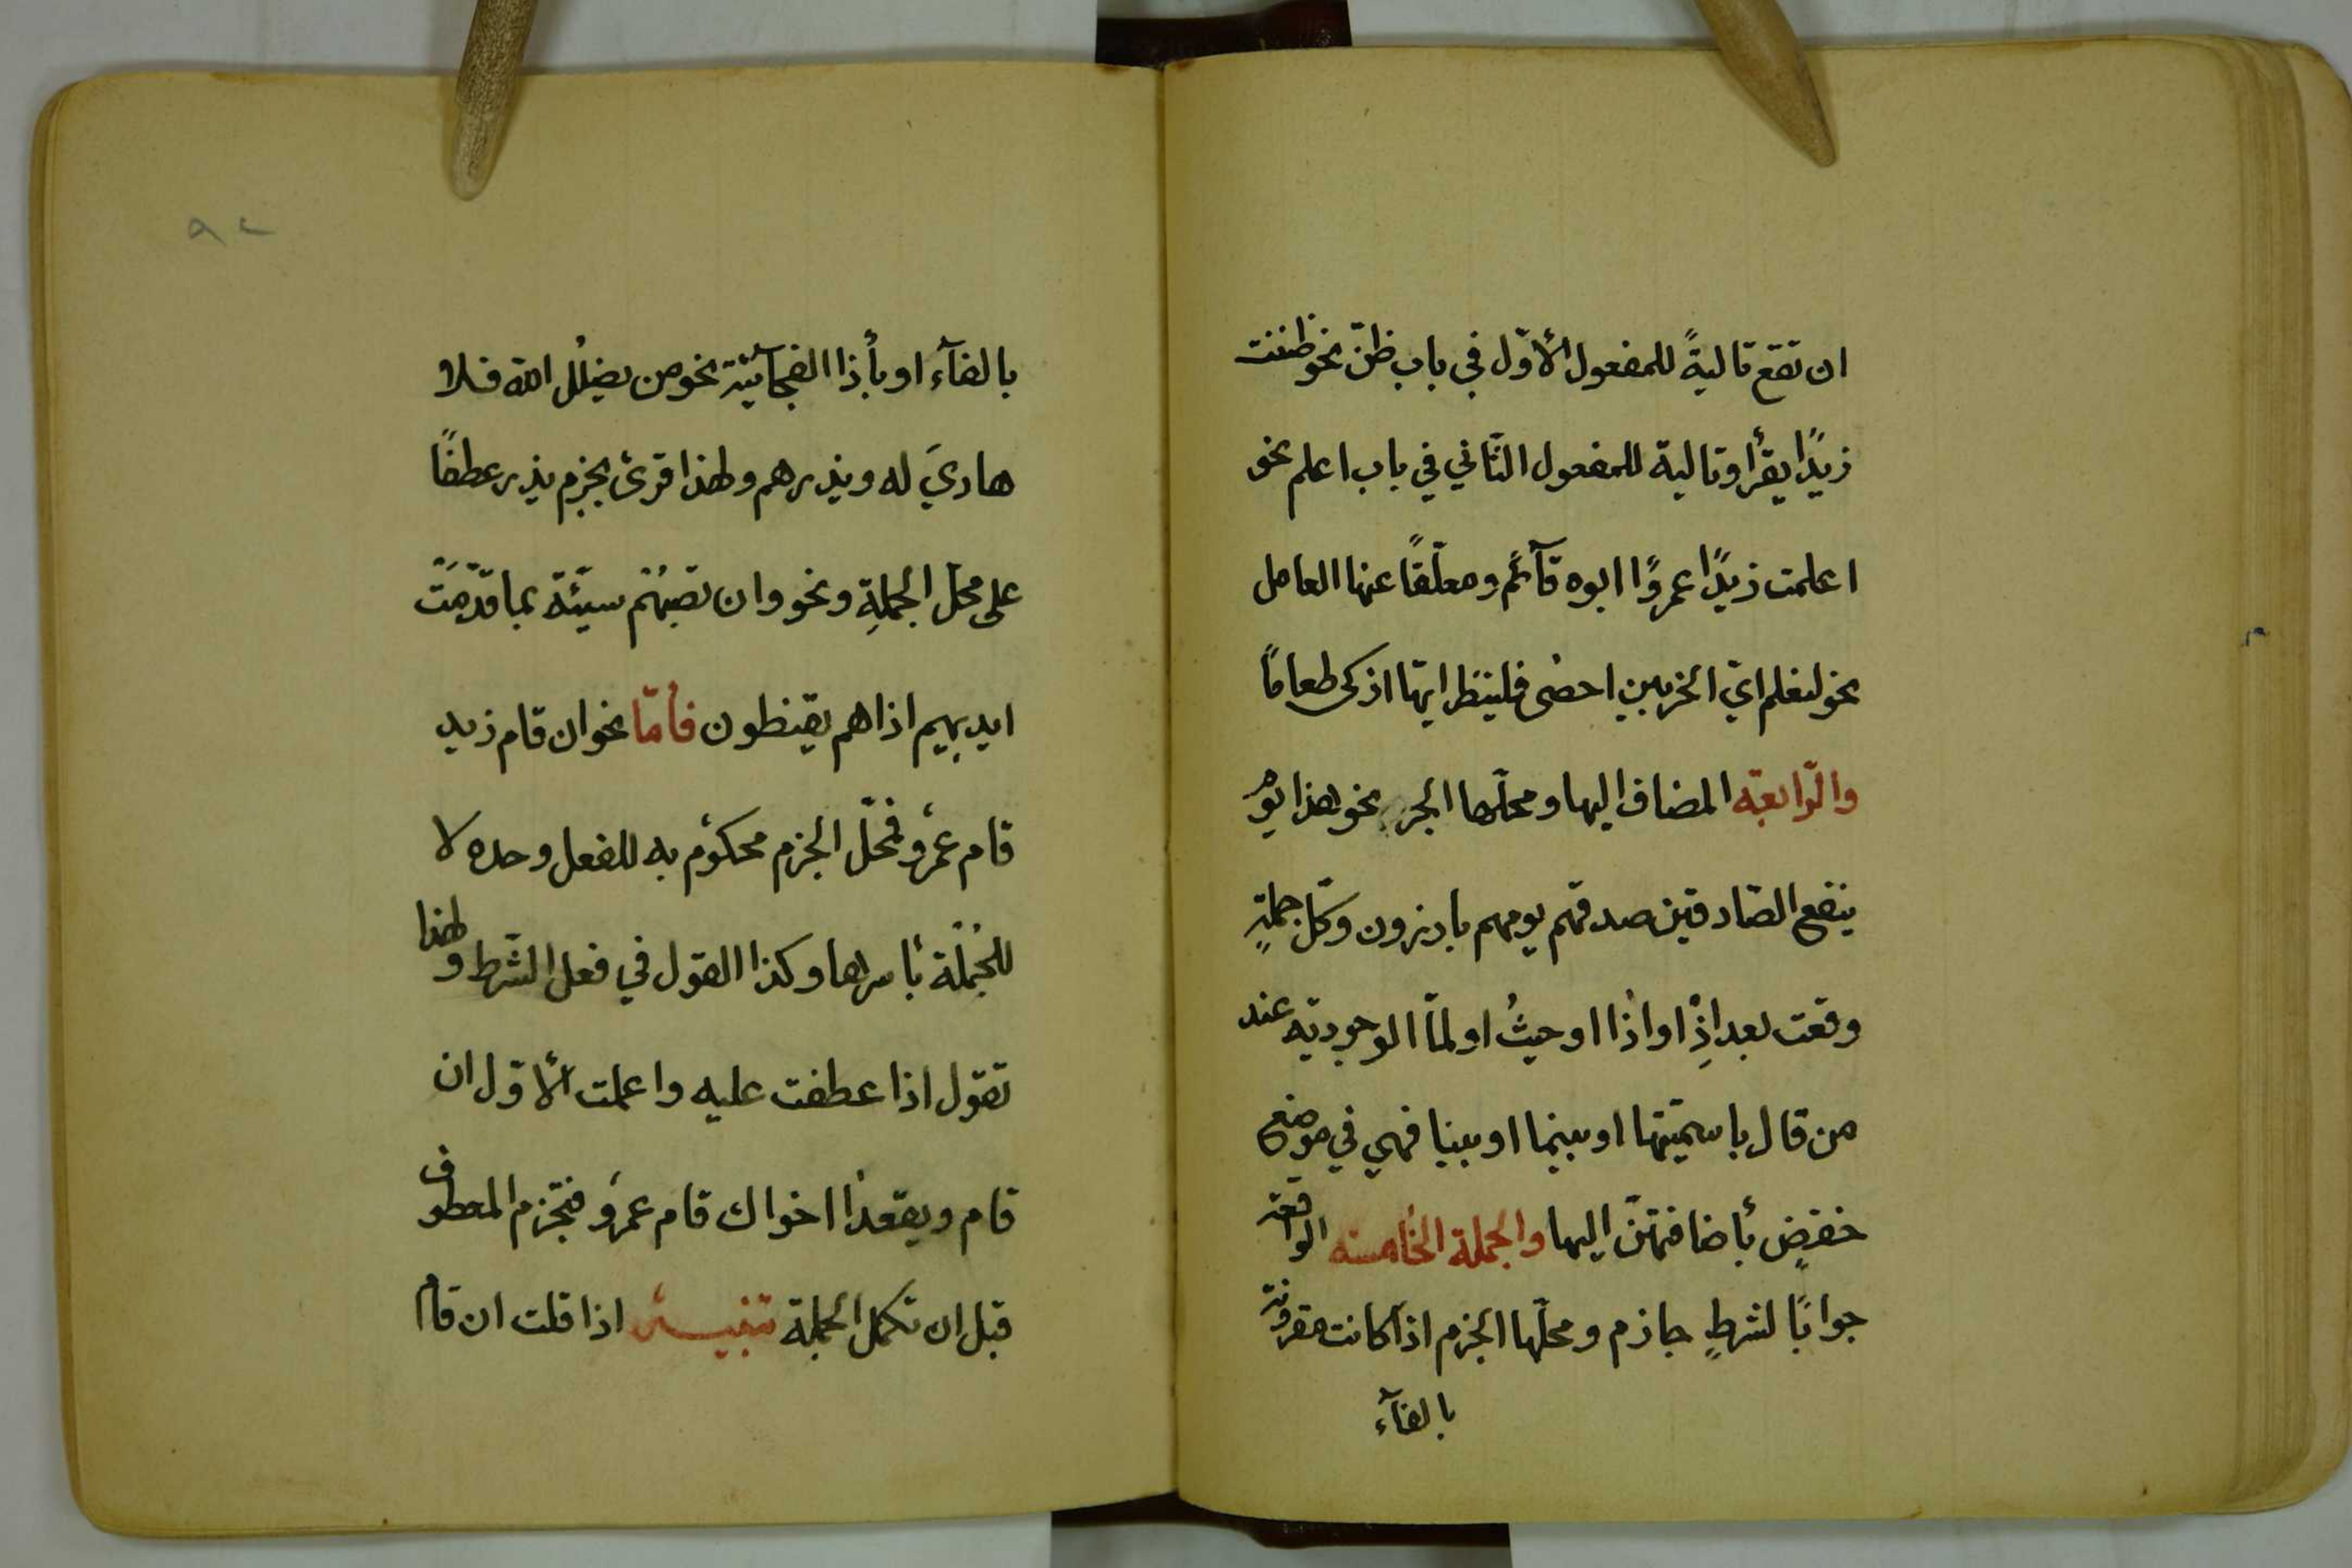 ان تقع تاليةً للمفعول الأوّل في باب ظنّ نحو ظننت
زيدًا يقرأ وتالية للمفعول الثّاني في باب اعلم نحو
اعلمت زيدًا عمروًا ابوه قآئم ومعلّقًا عنها العامل
نحو لنعلم ايّ الحزبين احصى فلينظر ايّها ازكى طعامًا
والرّابعة المضاف اليها ومحلّها الجر نحو هذا يوم
ينفع الصّادقين صدقهم يومهم بارزون وكلّ جملةٍ
وقعت بعد اذِْ او اذا او حيثُ او لمّا الوجوديّه عند
من قال باسميّتها او بينما او بينا فهي في موضع
خفضٍ بأضافتهنّ اليها والجملة الخامسة الواقعة
جوابًا لشرطٍ جازم ومحلّها الجزم اذا كانت مقرونة
بالفآء
٩٢
بالفآء او بأذا الفجآئيّة نحو من يضلل الله فلا
هاديَ له ويذرهم ولهذا قرئ بجزم يذر عطفًا
على محلّ الجملةِ ونحو وان تصبهُم سيّئة بما قدّمَتْ
ايديهم اذا هم يقنطون فأمّا نحو ان قام زيد
قام عمرٌو فمحلّ الجزم محكوم به للفعل وحده لا
للجُملة بأسرها وكذا القول في فعل الشّرط ولهذا
تقول اذا عطفت عليه واعملت الأوّل ان
قام ويقعدا اخواك قام عمرٌو فتجزم المعطوف
قبل ان تكمل الجملة تنبيه اذا قلت ان قام